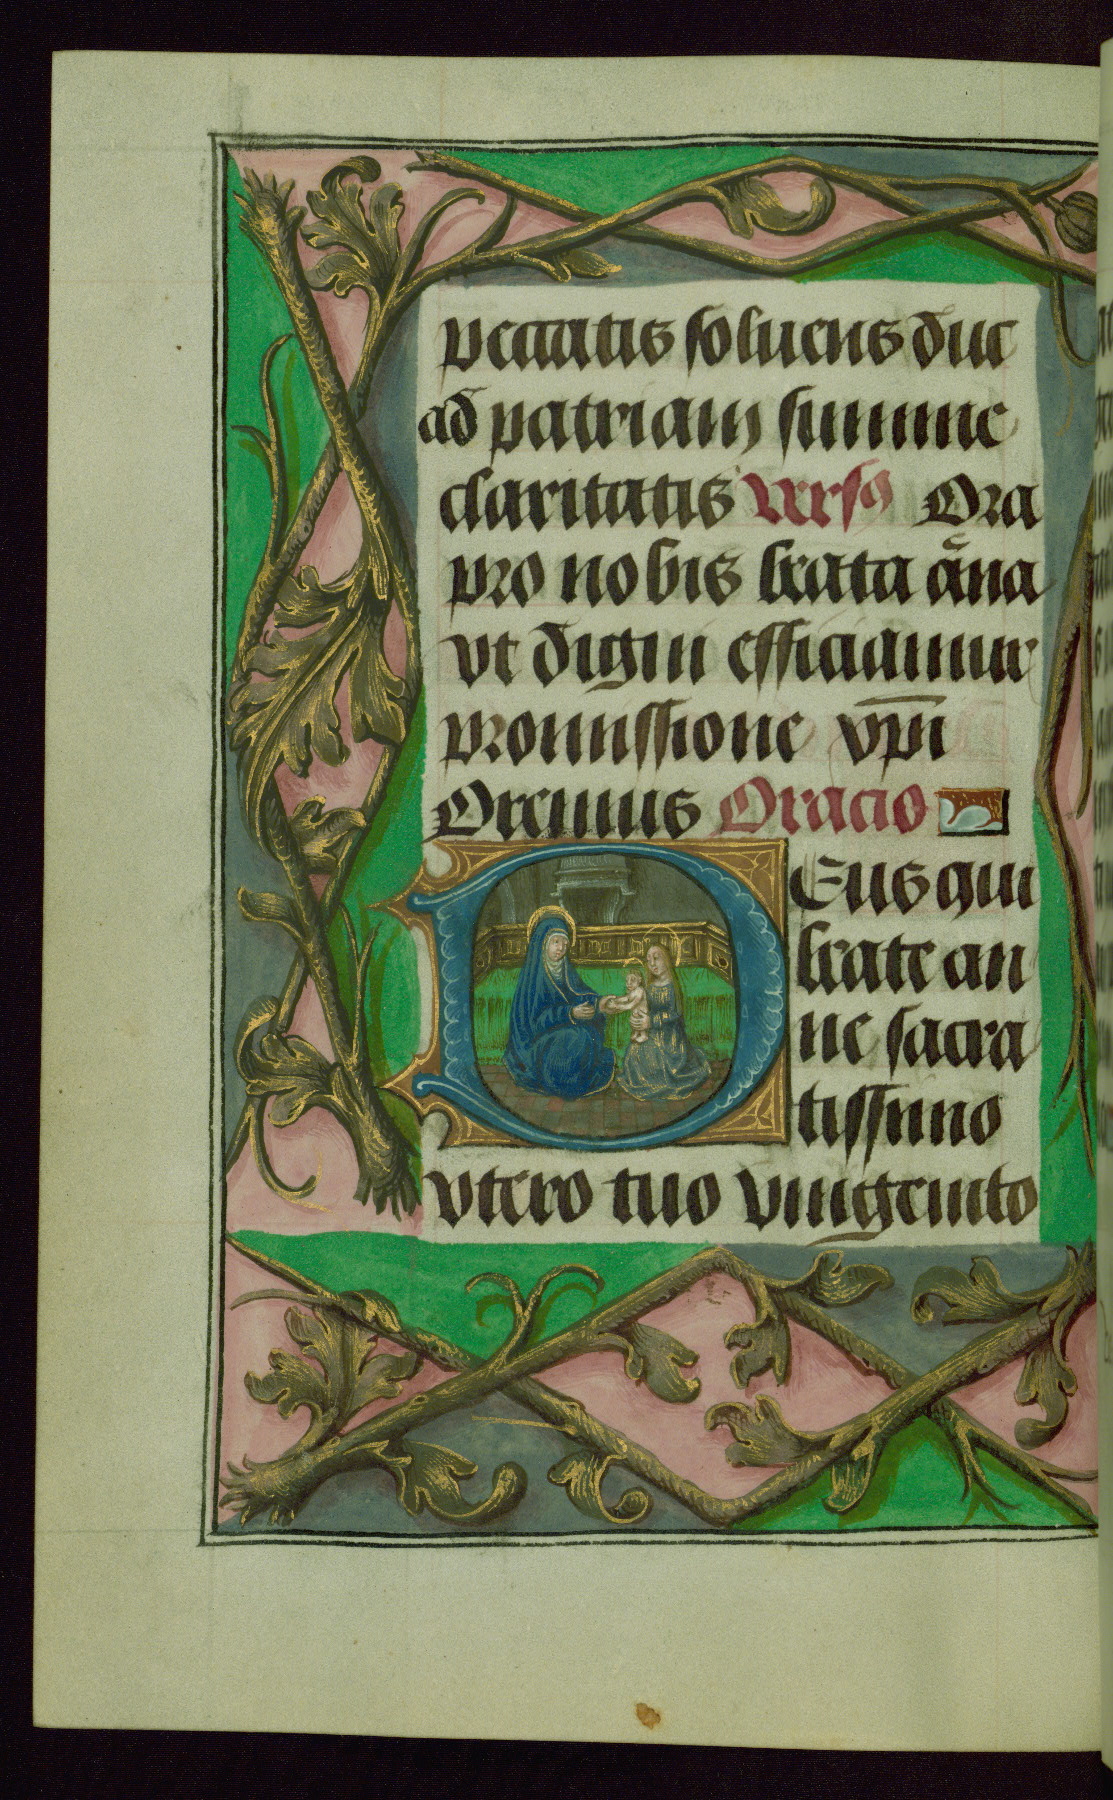 peccatis soluens duc
ad patriam summe
claritatis Versꝯ Ora
pro nobis beata āna
vt digni efficiamur
promissione xp̄i
Oremus Oracio
Deus qui
beate an
ne sacra
tissimo
vtero tuo vnigenito